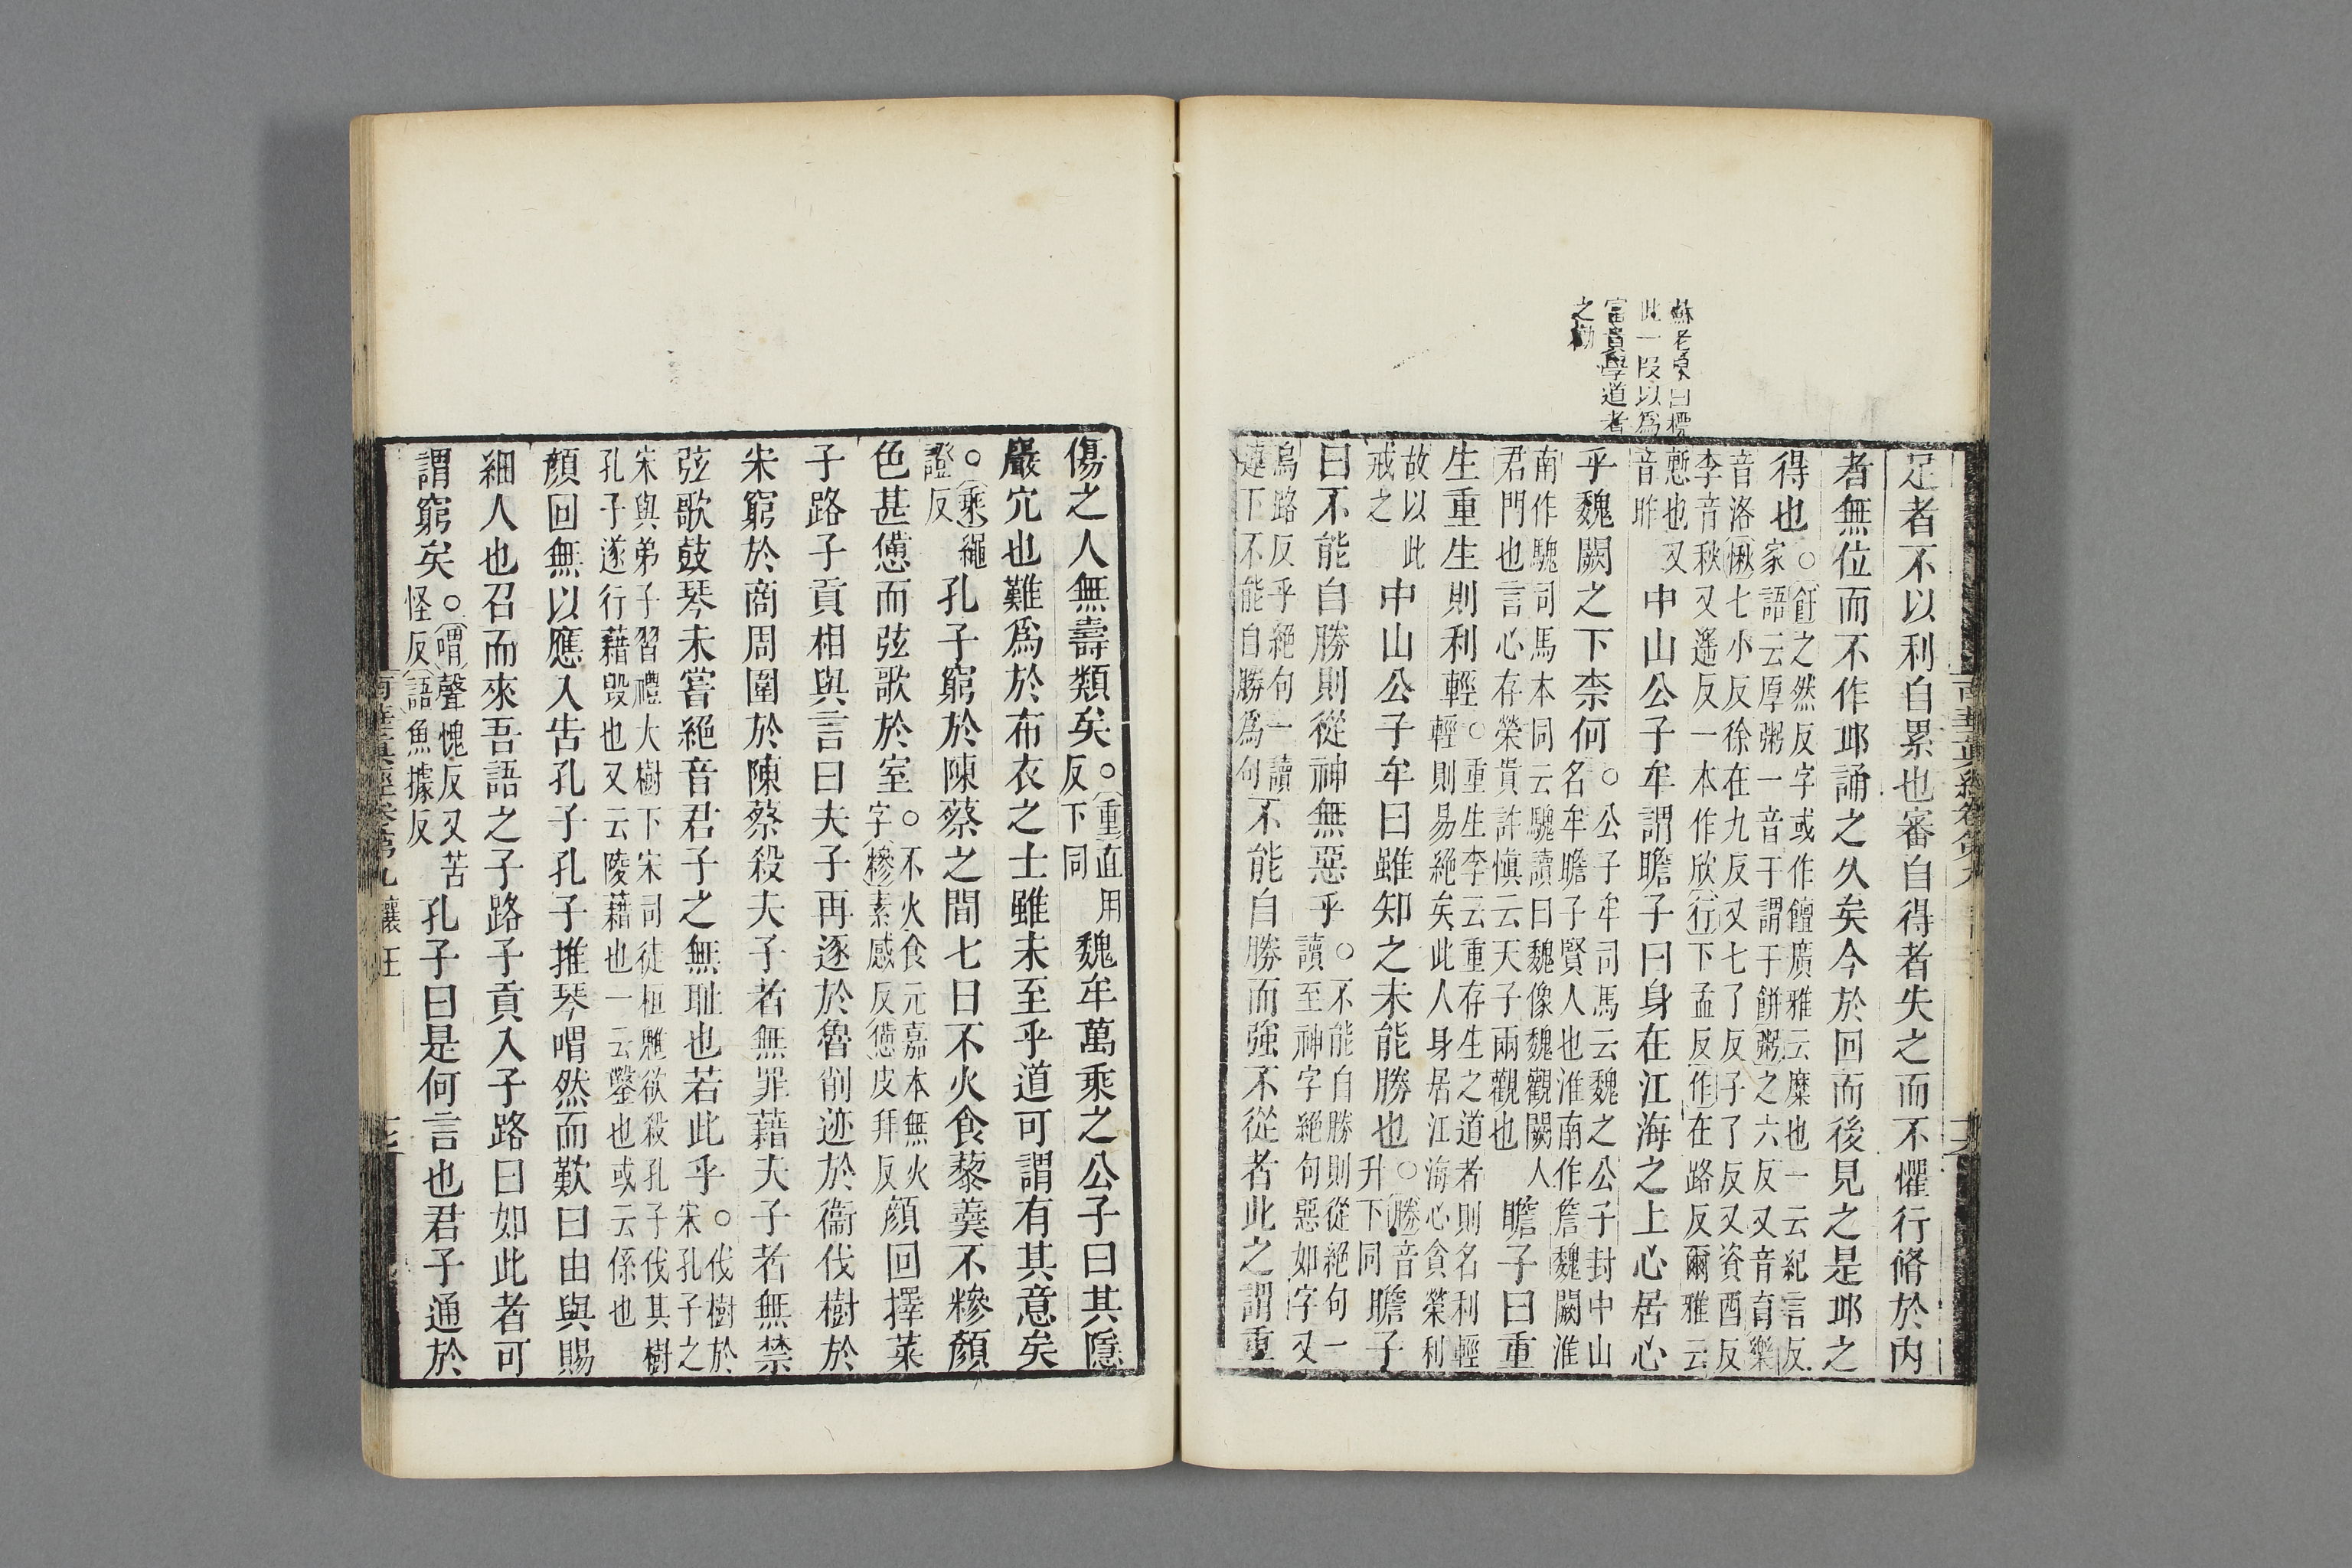 蘇老泉曰標
此一段以爲
富貴學道者
之勸
足者不以利自累也審自得者失之而不懼行脩於內
者無位而不作邱誦之久矣今於回而後見之是邱之
得也
○飦之然反字或作饘廣雅云糜也一云紀言反
家語云厚粥一音干謂干餅粥之六反又音育樂
音洛愀七小反徐在九反又七了反子了反又資酉反
李音秋又遙反一本作欣行下孟反作在路反爾雅云
慙也又
音昨
中山公子牟謂瞻子曰身在江海之上心居心
乎魏闕之下柰何
○公子牟司馬云魏之公子封中山
名牟瞻子賢人也淮南作詹魏闕淮
南作巍司馬本同云巍讀曰魏像魏觀闕人
君門也言心存榮貴許慎云天子兩觀也
瞻子曰重
生重生則利輕
○重生李云重存生之道者則名利輕
輕則易絕矣此人身居江海心貪榮利
故以此
戒之
中山公子牟曰雖知之未能勝也
○勝音
升下同
瞻子
曰不能自勝則從神無惡乎
○不能自勝則從絕句一
讀至神字絕句惡如字又
烏路反乎絕句一讀
連下不能自勝爲句
不能自勝而強不從者此之謂重
傷之人無壽類矣
○重直用
反下同
魏牟萬乘之公子曰其隱
巖穴也難爲於布衣之士雖未至乎道可謂有其意矣
○乘繩
證反
孔子窮於陳蔡之間七日不火食藜羹不糝顏
色甚憊而弦歌於室
○不火食元嘉本無火
字糝素感反憊皮拜反
顏回擇菜
子路子貢相與言曰夫子再逐於魯削迹於衞伐樹於
宋窮於商周圍於陳蔡殺夫子者無罪藉夫子者無禁
弦歌鼓琴未嘗絕音君子之無耻也若此乎
○伐樹於
宋孔子之
宋與弟子習禮大樹下宋司徒桓魋欲殺孔子伐其樹
孔子遂行藉毀也又云陵藉也一云鑿也或云係也
顏回無以應入告孔子孔子推琴喟然而歎曰由與賜
細人也召而來吾語之子路子貢入子路曰如此者可
謂窮矣
○喟聲愧反又苦
怪反語魚據反
孔子曰是何言也君子通於
南華眞經卷第九 讓王